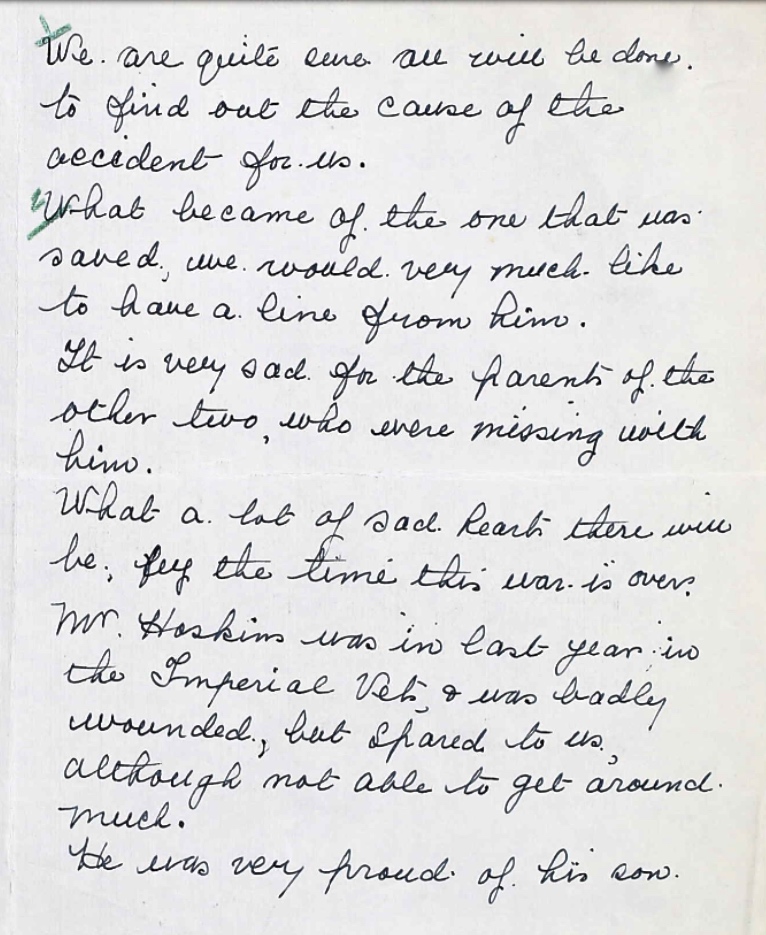 We. are quite sure all will be done.
to find out the cause of the
accident for us.
What became of the one that was
saved, we would very much like
to have a line from him.
It is very sad for the parents of the
other two, who were missing with
him.
What a lot of sad hearts there will
be, by the time this war is over.
Mr. Hoskins was in last year in
the Imperial Vets, & was badly
wounded, but spared to us,
although not able to get around
much.
He was very proud of his son.